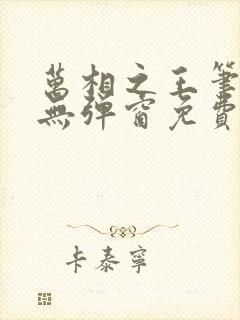 萬相之王筆
無彈窗免費
卡泰寧